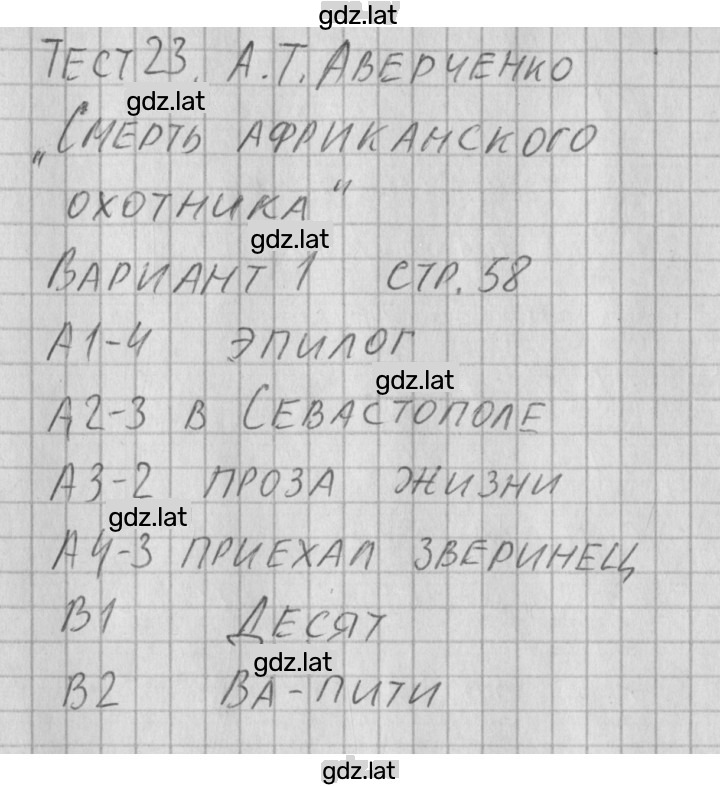 gdz.lat
ТЕСТ 23. А.Т. АВЕРЧЕНКО
gdz.lat
„СМЕРТЬ АФРИКАНСКОГО
ОХОТНИКА"
gdz.lat
ВАРИАНТ 1 СТР. 58
А1-4 ЭПИЛОГ
gdz.lat
А2-3 В СЕВАСТОПОЛЕ
А3-2 ПРОЗА ЖИЗНИ
gdz.lat
А4-3 ПРИЕХАЛ ЗВЕРИНЕЦ
В1 ДЕСЯТ
gdz.lat
В2 ВА-ПИТИ
gdz.lat